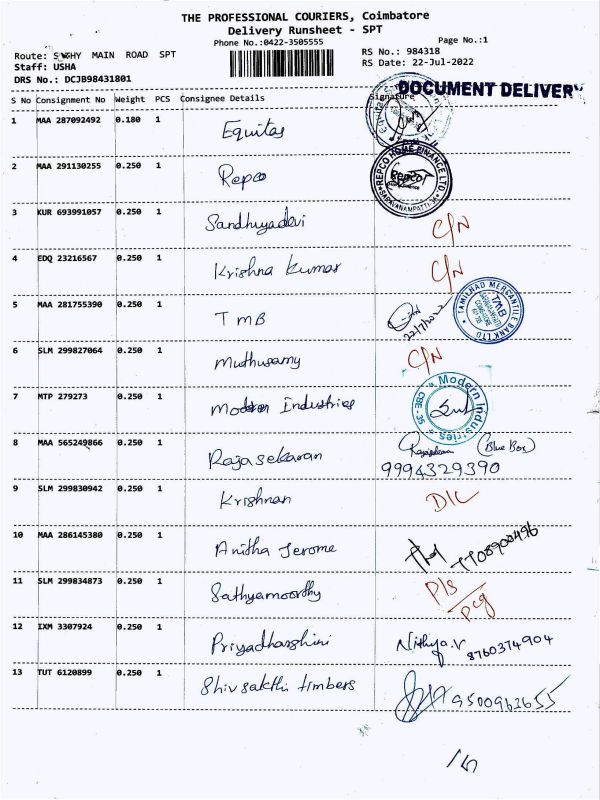 THE PROFESSIONAL COURIERS, Coimbatore
Delivery Runsheet - SPT
Phone No.:0422-3505555
Page No.:1
Route: S SWHY MAIN ROAD SPT
RS No.: 984318
Staff: USHA
RS Date: 22-Jul-2022
DRS No.: DCJB98431801
DOCUMENT DELIVERY
S No Consignment No Weight PCS Consignee Details Signature
1 MAA 287092492 0.180 1 Equitas
2 MAA 291130255 0.250 1 Repco REPCO HOME FINANCE LTD
3 KUR 693991057 0.250 1 Sandhuyadevi C/N
4 EDQ 23216567 0.250 1 Krishna kumar C/N
5 MAA 281755390 0.250 1 TMB 22/7/2022 TAMILNAD MERCANTILE BANK LTD TMB
6 SLM 299827064 0.250 1 Muthusamy C/N
7 MTP 279273 0.250 1 Modern Industries Modern Industries CBE-35
8 MAA 565249866 0.250 1 Rajasekaran (Blue Box)
9994329390
9 SLM 299830942 0.250 1 Krishnan D/L
10 MAA 286145380 0.250 1 Anitha Jerome
11 SLM 299834873 0.250 1 Sathyamoorthy P/s
12 IXM 3307924 0.250 1 Priyadharshini Nithya.V 8760374904
13 TUT 6120899 0.250 1 Shivsakthi timbers 9500963655